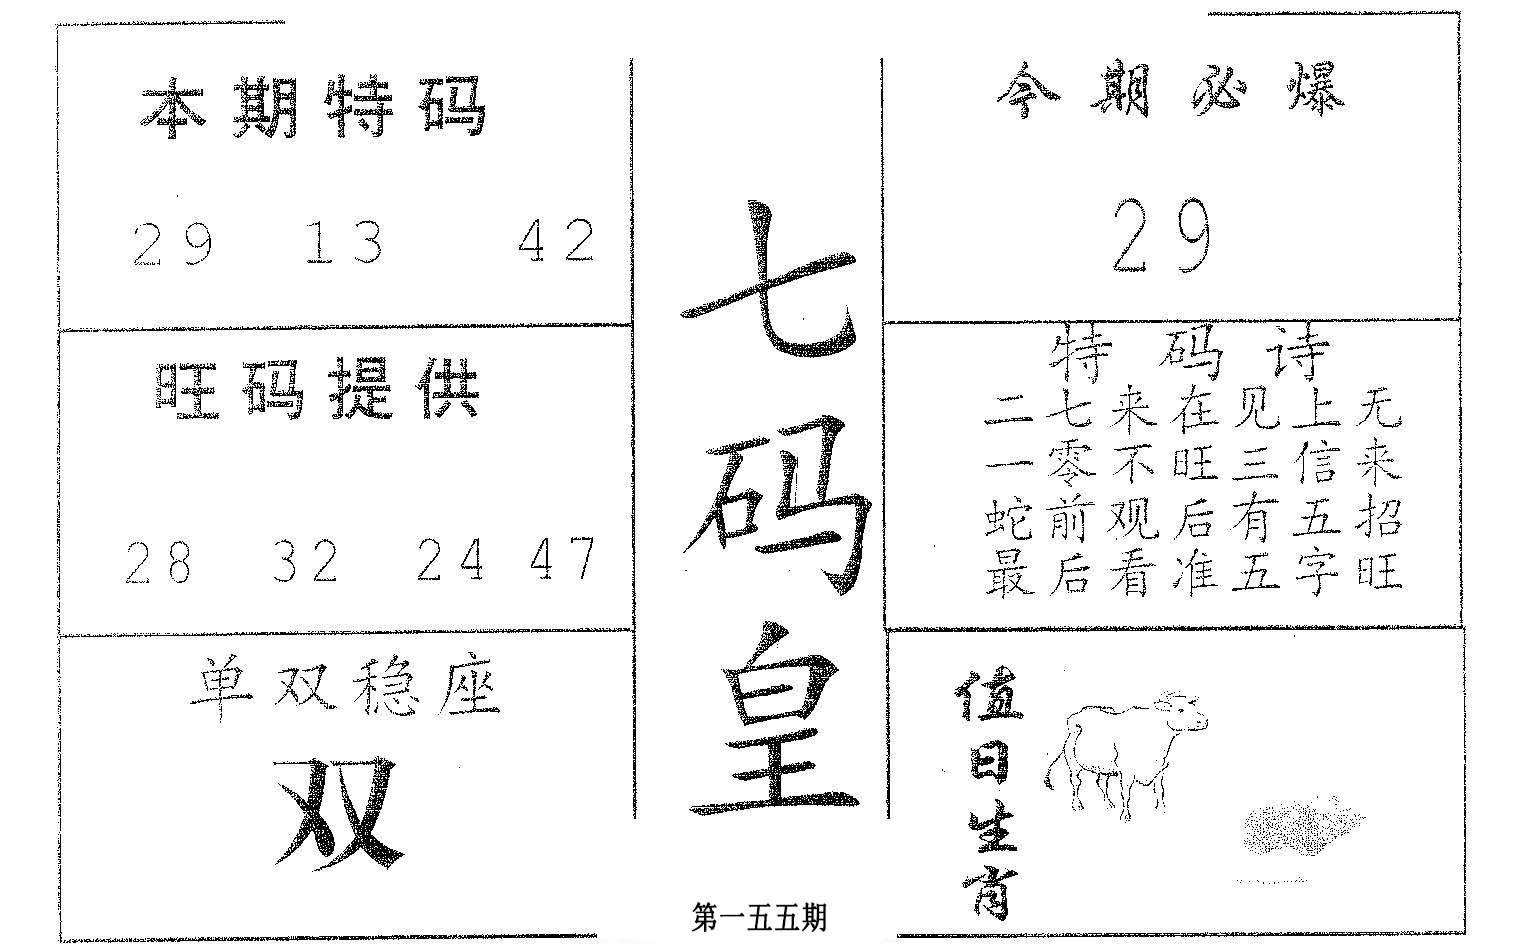 本期特码
29 13 42
旺码提供
28 32 24 47
单双稳座
双
七码皇
第一五五期
今期必爆
29
特码诗
二七来在见上无
一零不旺三信来
蛇前观后有五招
最后看准五字旺
值日生肖